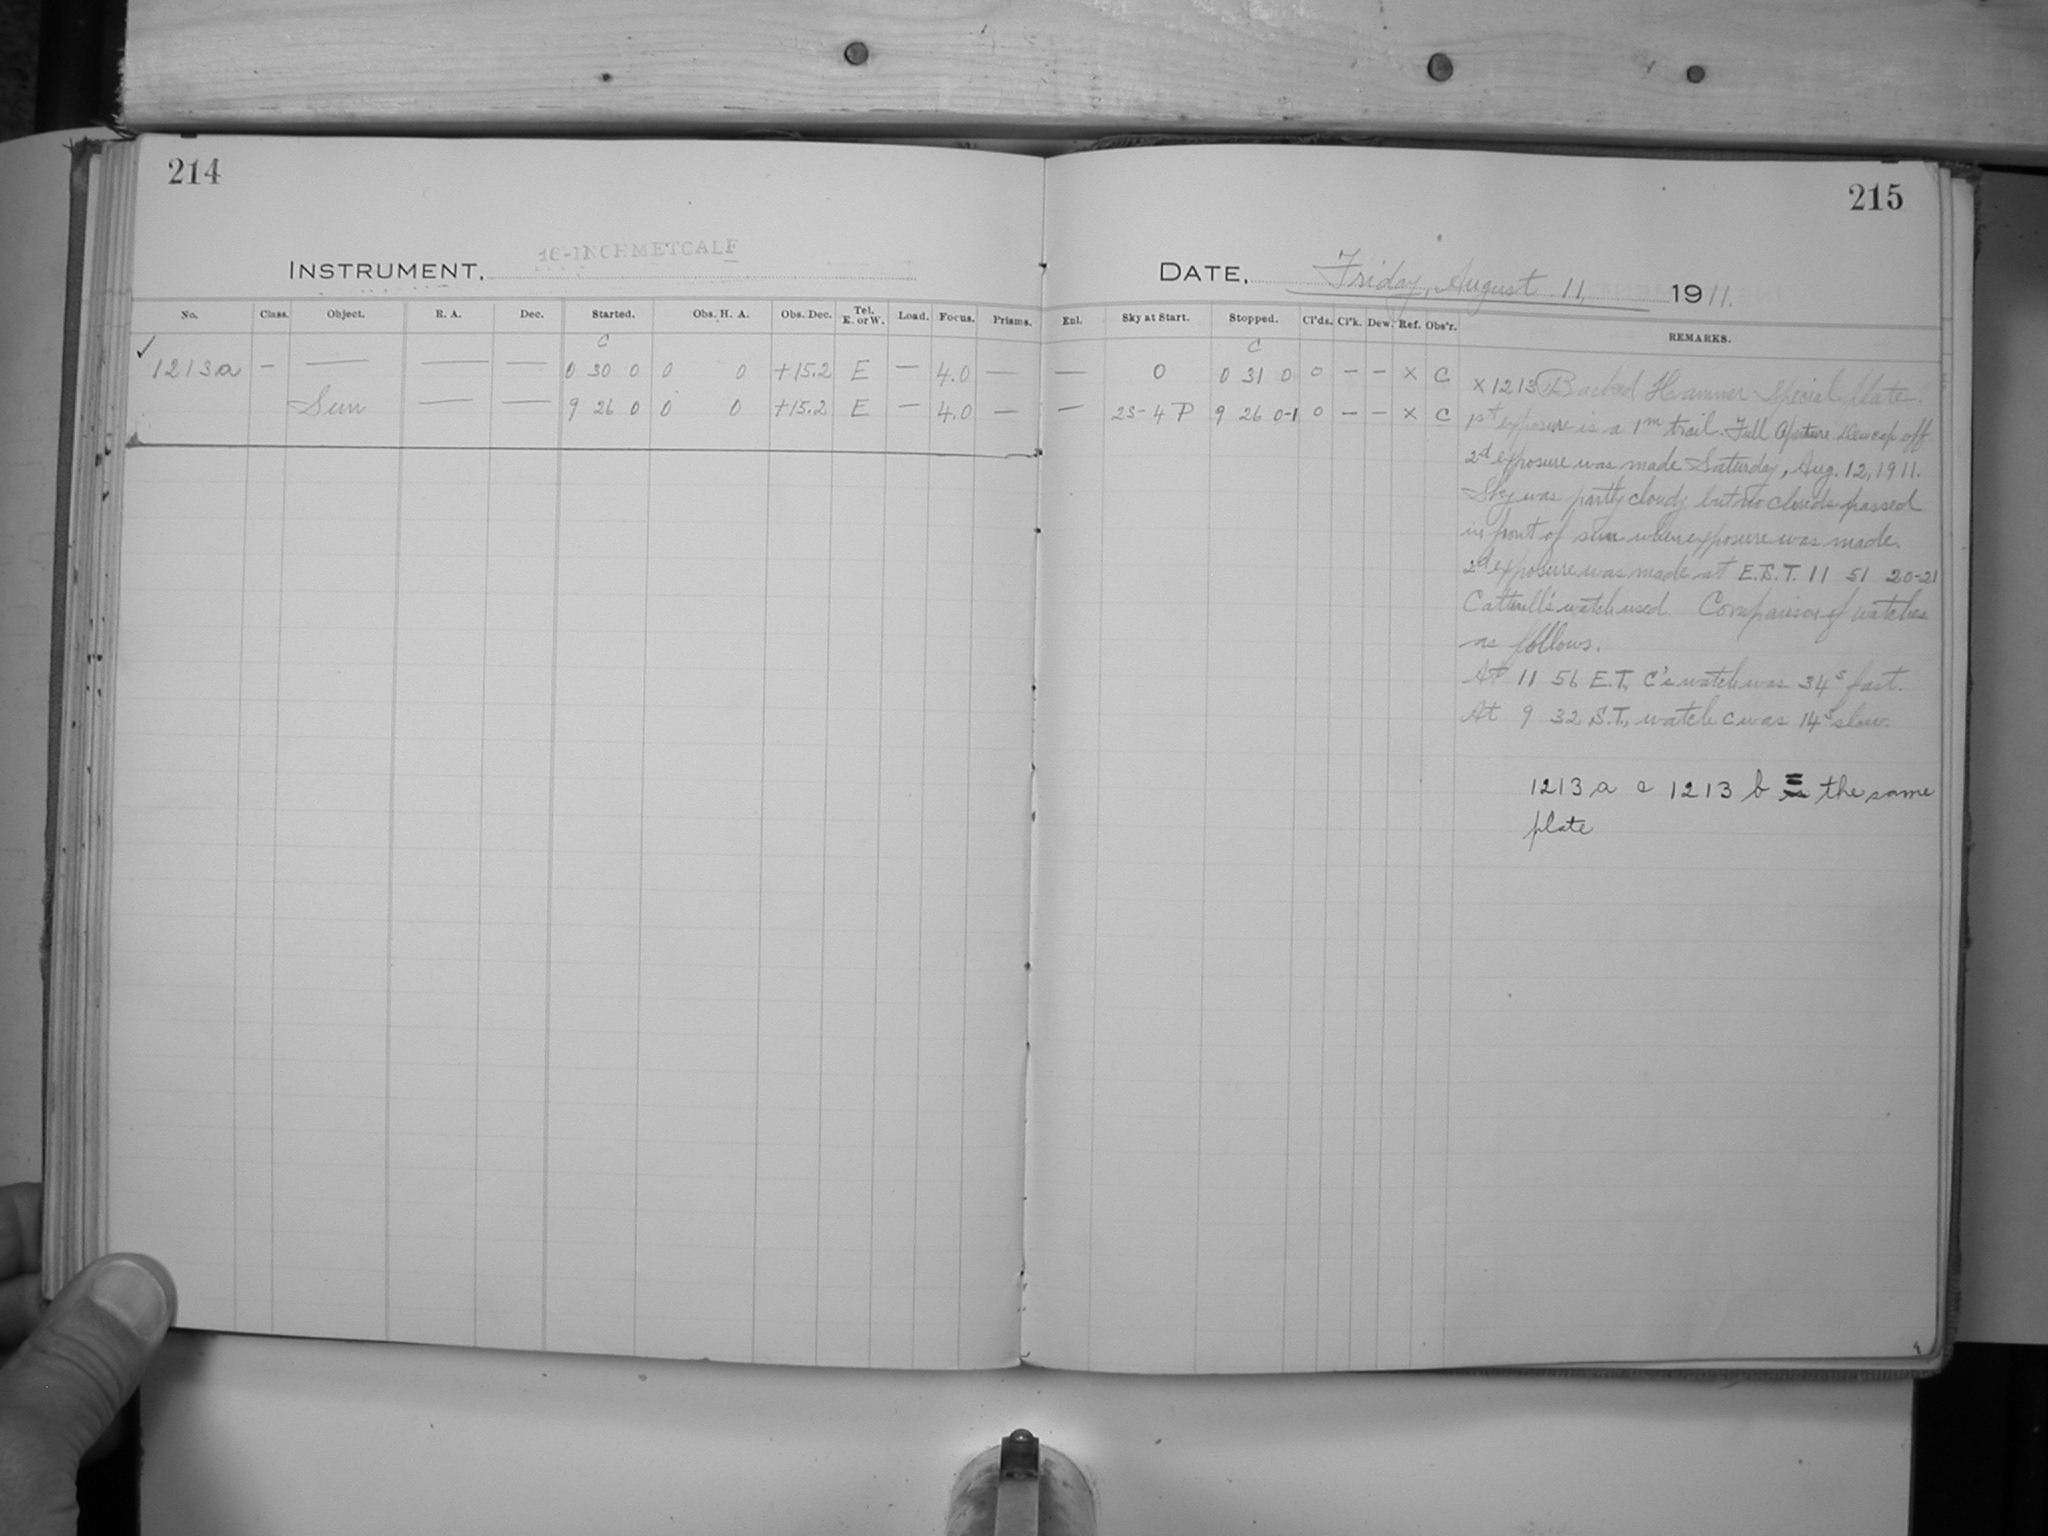 214
215
INSTRUMENT, 16-INCH METCALF
DATE, Friday, August 11, 1911.
No. Class. Object. R. A. Dec. Started. Obs. H. A. Obs. Dec. Tel. E. or W. Load. Focus. Prisms. Enl. Sky at Start. Stopped. Cl'ds. Cl'k. Dew. Ref. Obs'r. REMARKS.
C C
✓ 1213a — — — — 0 30 0 0 0 +15.2 E — 4.0 — — 0 0 31 0 0 — — × C
Sun — — 9 26 0 0 0 +15.2 E — 4.0 — — 2S-4 P 9 26 0-1 0 — — × C
×1213 Backed Hammer Special Plate.
1st exposure is a 1m trail. Full Aperture Dewcap off
2d exposure was made Saturday, Aug. 12, 1911.
Sky was partly cloudy but no clouds passed
in front of sun when exposure was made.
2d exposure was made at E.S.T. 11 51 20-21
Catterell's watch used. Comparison of watches
as follows.
At 11 56 E.T, C's watch was 34s fast.
At 9 32 S.T., watch C was 14s slow.
1213 a & 1213 b = the same
plate